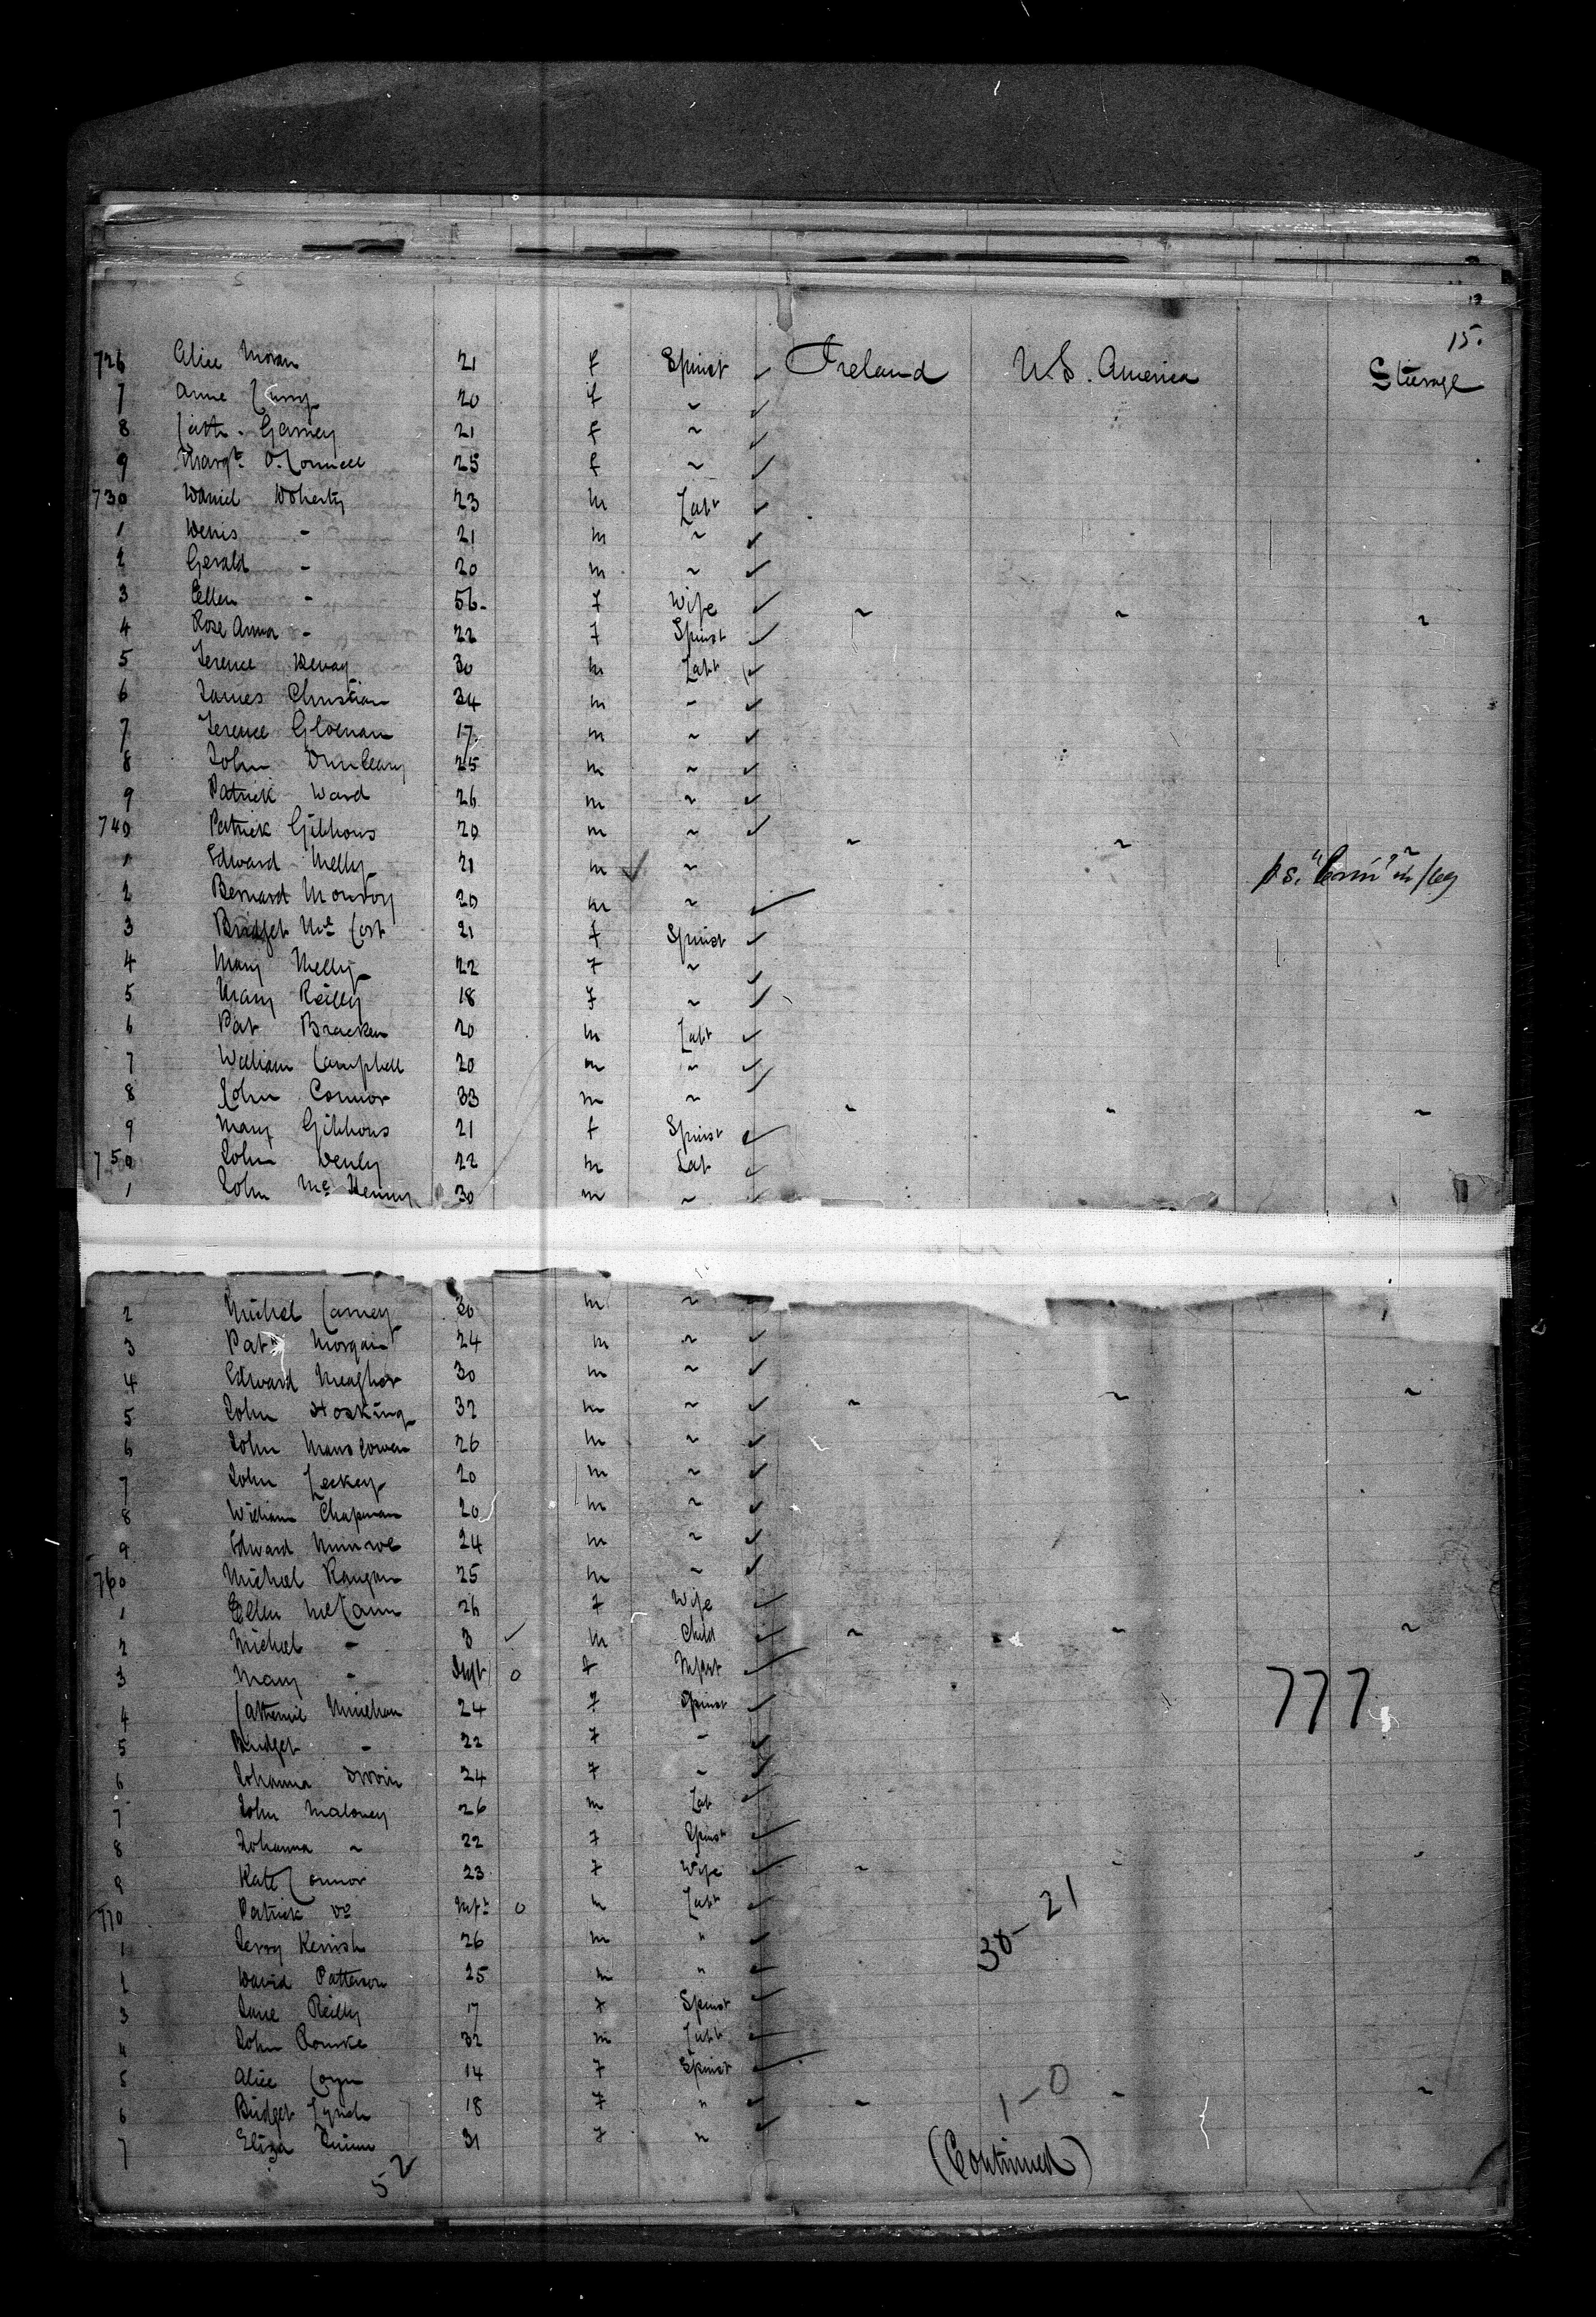 15.
726 Alice Moran 21 f Spinst Ireland U.S. America Steerage
7 Anne 20 f ~
8 Cath. Garney 21 f ~
9 Margt. O'Connell 25 f ~
730 Daniel Doherty 23 m Labr
1 Denis - 21 m ~
2 Gerald - 20 m ~
3 Ellen - 56 f Wife ~ ~ ~
4 Rose Anna - 22 f Spinst
5 Terence 30 m Labr
6 James Christian 34 m -
7 Terence 17 m ~
8 John Dunleavy 25 m ~
9 Patrick Ward 26 m ~
740 Patrick Gibbons 20 m ~ ~ ~ ~
1 Edward Melly 21 m ~
2 Bernard 20 m ~
3 Bridget Mc 21 f Spinst
4 Mary Melly 22 f ~
5 Mary Reilly 18 f ~
6 Pat Bracken 20 m Labr
7 William Campbell 20 m ~
8 John Connor 33 m ~ ~ ~ ~
9 Mary Gibbons 21 f Spinst
750 John 22 m Lab
1 John Mc 30 m ~
2 Michel Carney 30 m ~
3 Pat Morgan 24 m ~
4 Edward Meagher 30 m ~
5 John Hosking 32 m ~ ~ ~ ~
6 John 26 m ~
7 John Leckey 20 m ~
8 William Chapman 20 m ~
9 Edward 24 m ~
760 Michael 25 m ~
1 Ellen McCann 26 f Wife
2 Michael - 3 m Child ~ ~ ~
3 Mary - Inft 0 f Infant
777
4 Catherine 24 f Spinst
5 Bridget - 22 f -
6 Johanna 24 f ~
7 John Maloney 26 m Lab
8 Johanna ~ 22 f Spinst
9 Kate Connor 23 f Wife ~ - ~
770 Patrick Do Inft 0 m Labr
30-21
1 26 m "
2 David Patterson 25 m "
3 Jane Reilly 17 f Spinst
4 John Rourke 32 m Labr
5 Alice 14 f Spinst
6 Bridget Lynch 18 f " ~ ~ ~
1-0
7 Eliza Quinn 31 f "
52
(Continued)